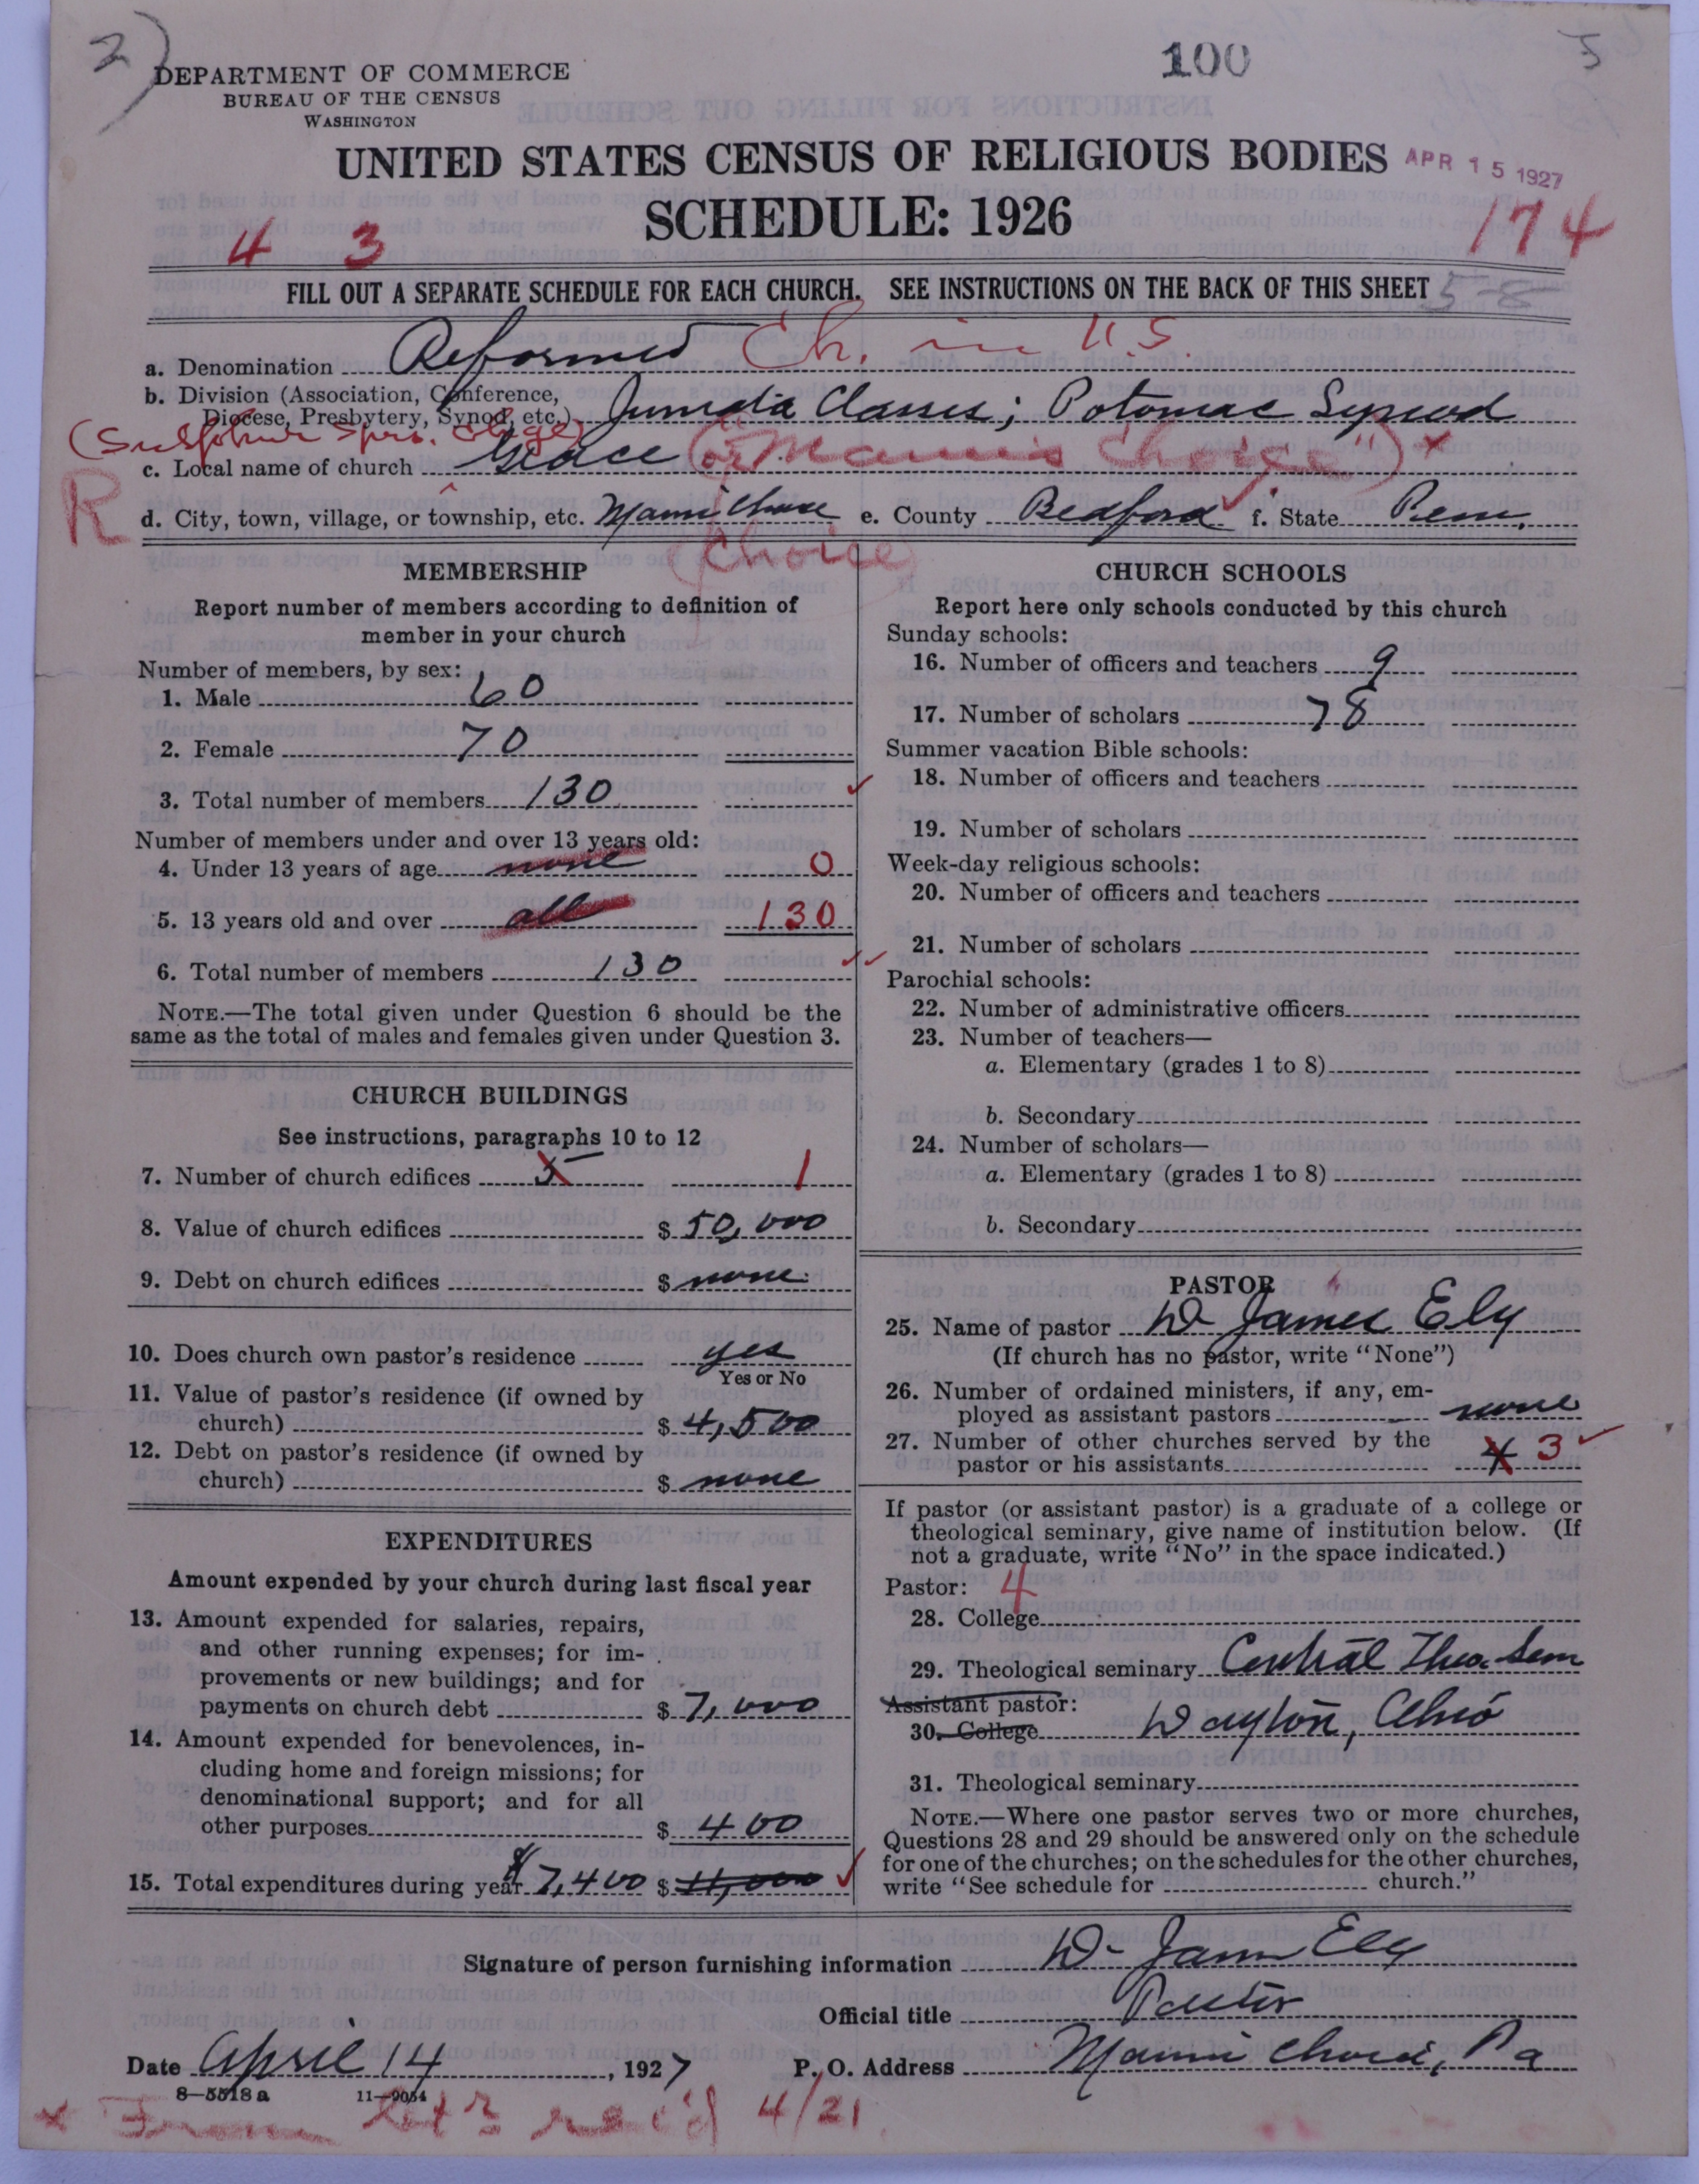 2)
100
5
DEPARTMENT OF COMMERCE
BUREAU OF THE CENSUS
WASHINGTON
UNITED STATES CENSUS OF RELIGIOUS BODIES
APR 15 1927
SCHEDULE: 1926
4 3
174
FILL OUT A SEPARATE SCHEDULE FOR EACH CHURCH. SEE INSTRUCTIONS ON THE BACK OF THIS SHEET
5-8
a. Denomination Reformed Ch. in U.S.
b. Division (Association, Conference,
Diocese, Presbytery, Synod, etc.) Juniata Classis; Potomac Synod
(Sulphur Sprs. Chge)
c. Local name of church Grace (or "Mann's Choice") x
R
d. City, town, village, or township, etc. Manns Choice e. County Bedford f. State Penn.
Choice
MEMBERSHIP
Report number of members according to definition of
member in your church
Number of members, by sex:
1. Male 60
2. Female 70
3. Total number of members 130
Number of members under and over 13 years old:
4. Under 13 years of age none 0
5. 13 years old and over all 130
6. Total number of members 130
NOTE.—The total given under Question 6 should be the
same as the total of males and females given under Question 3.
CHURCH BUILDINGS
See instructions, paragraphs 10 to 12
7. Number of church edifices 5 1
8. Value of church edifices $ 50,000
9. Debt on church edifices $ none
10. Does church own pastor's residence yes
Yes or No
11. Value of pastor's residence (if owned by
church) $ 4,500
12. Debt on pastor's residence (if owned by
church) $ none
EXPENDITURES
Amount expended by your church during last fiscal year
13. Amount expended for salaries, repairs,
and other running expenses; for im-
provements or new buildings; and for
payments on church debt $ 7,000
14. Amount expended for benevolences, in-
cluding home and foreign missions; for
denominational support; and for all
other purposes $ 400
15. Total expenditures during year $ 7,400 $ 11,000
CHURCH SCHOOLS
Report here only schools conducted by this church
Sunday schools:
16. Number of officers and teachers 9
17. Number of scholars 78
Summer vacation Bible schools:
18. Number of officers and teachers
19. Number of scholars
Week-day religious schools:
20. Number of officers and teachers
21. Number of scholars
Parochial schools:
22. Number of administrative officers
23. Number of teachers—
a. Elementary (grades 1 to 8)
b. Secondary
24. Number of scholars—
a. Elementary (grades 1 to 8)
b. Secondary
PASTOR
25. Name of pastor D James Ely
(If church has no pastor, write "None")
26. Number of ordained ministers, if any, em-
ployed as assistant pastors none
27. Number of other churches served by the
pastor or his assistants 4 3
If pastor (or assistant pastor) is a graduate of a college or
theological seminary, give name of institution below. (If
not a graduate, write "No" in the space indicated.)
Pastor: 4
28. College
29. Theological seminary Central Theo. Sem
Assistant pastor:
30. College Dayton, Ohio
31. Theological seminary
NOTE.—Where one pastor serves two or more churches,
Questions 28 and 29 should be answered only on the schedule
for one of the churches; on the schedules for the other churches,
write "See schedule for church."
Signature of person furnishing information D- James Ely
Official title Pastor
Date April 14, 1927 P. O. Address Manns Choice, Pa
8-5518 a 11-9054
x From let's rec'd 4/21